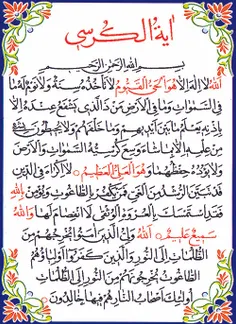 آیة الکرسی
بسم الله الرحمن الرحیم
الله لا اله الا هو الحی القیوم لا تأخذه سنة ولا نوم له ما
فی السموات وما فی الارض من ذا الذی یشفع عنده الا
باذنه یعلم ما بین ایدیهم وما خلفهم ولا یحیطون بشیء
من علمه الا بما شاء وسع کرسیه السموات والارض
ولا یؤده حفظهما وهو العلی العظیم لا اکراه فی الدین
قد تبین الرشد من الغی فمن یکفر بالطاغوت ویؤمن بالله
فقد استمسک بالعروة الوثقی لا انفصام لها والله
سمیع علیم الله ولی الذین آمنوا یخرجهم من
الظلمات الی النور والذین کفروا اولیاؤهم
الطاغوت یخرجونهم من النور الی الظلمات
اولئک اصحاب النار هم فیها خالدون